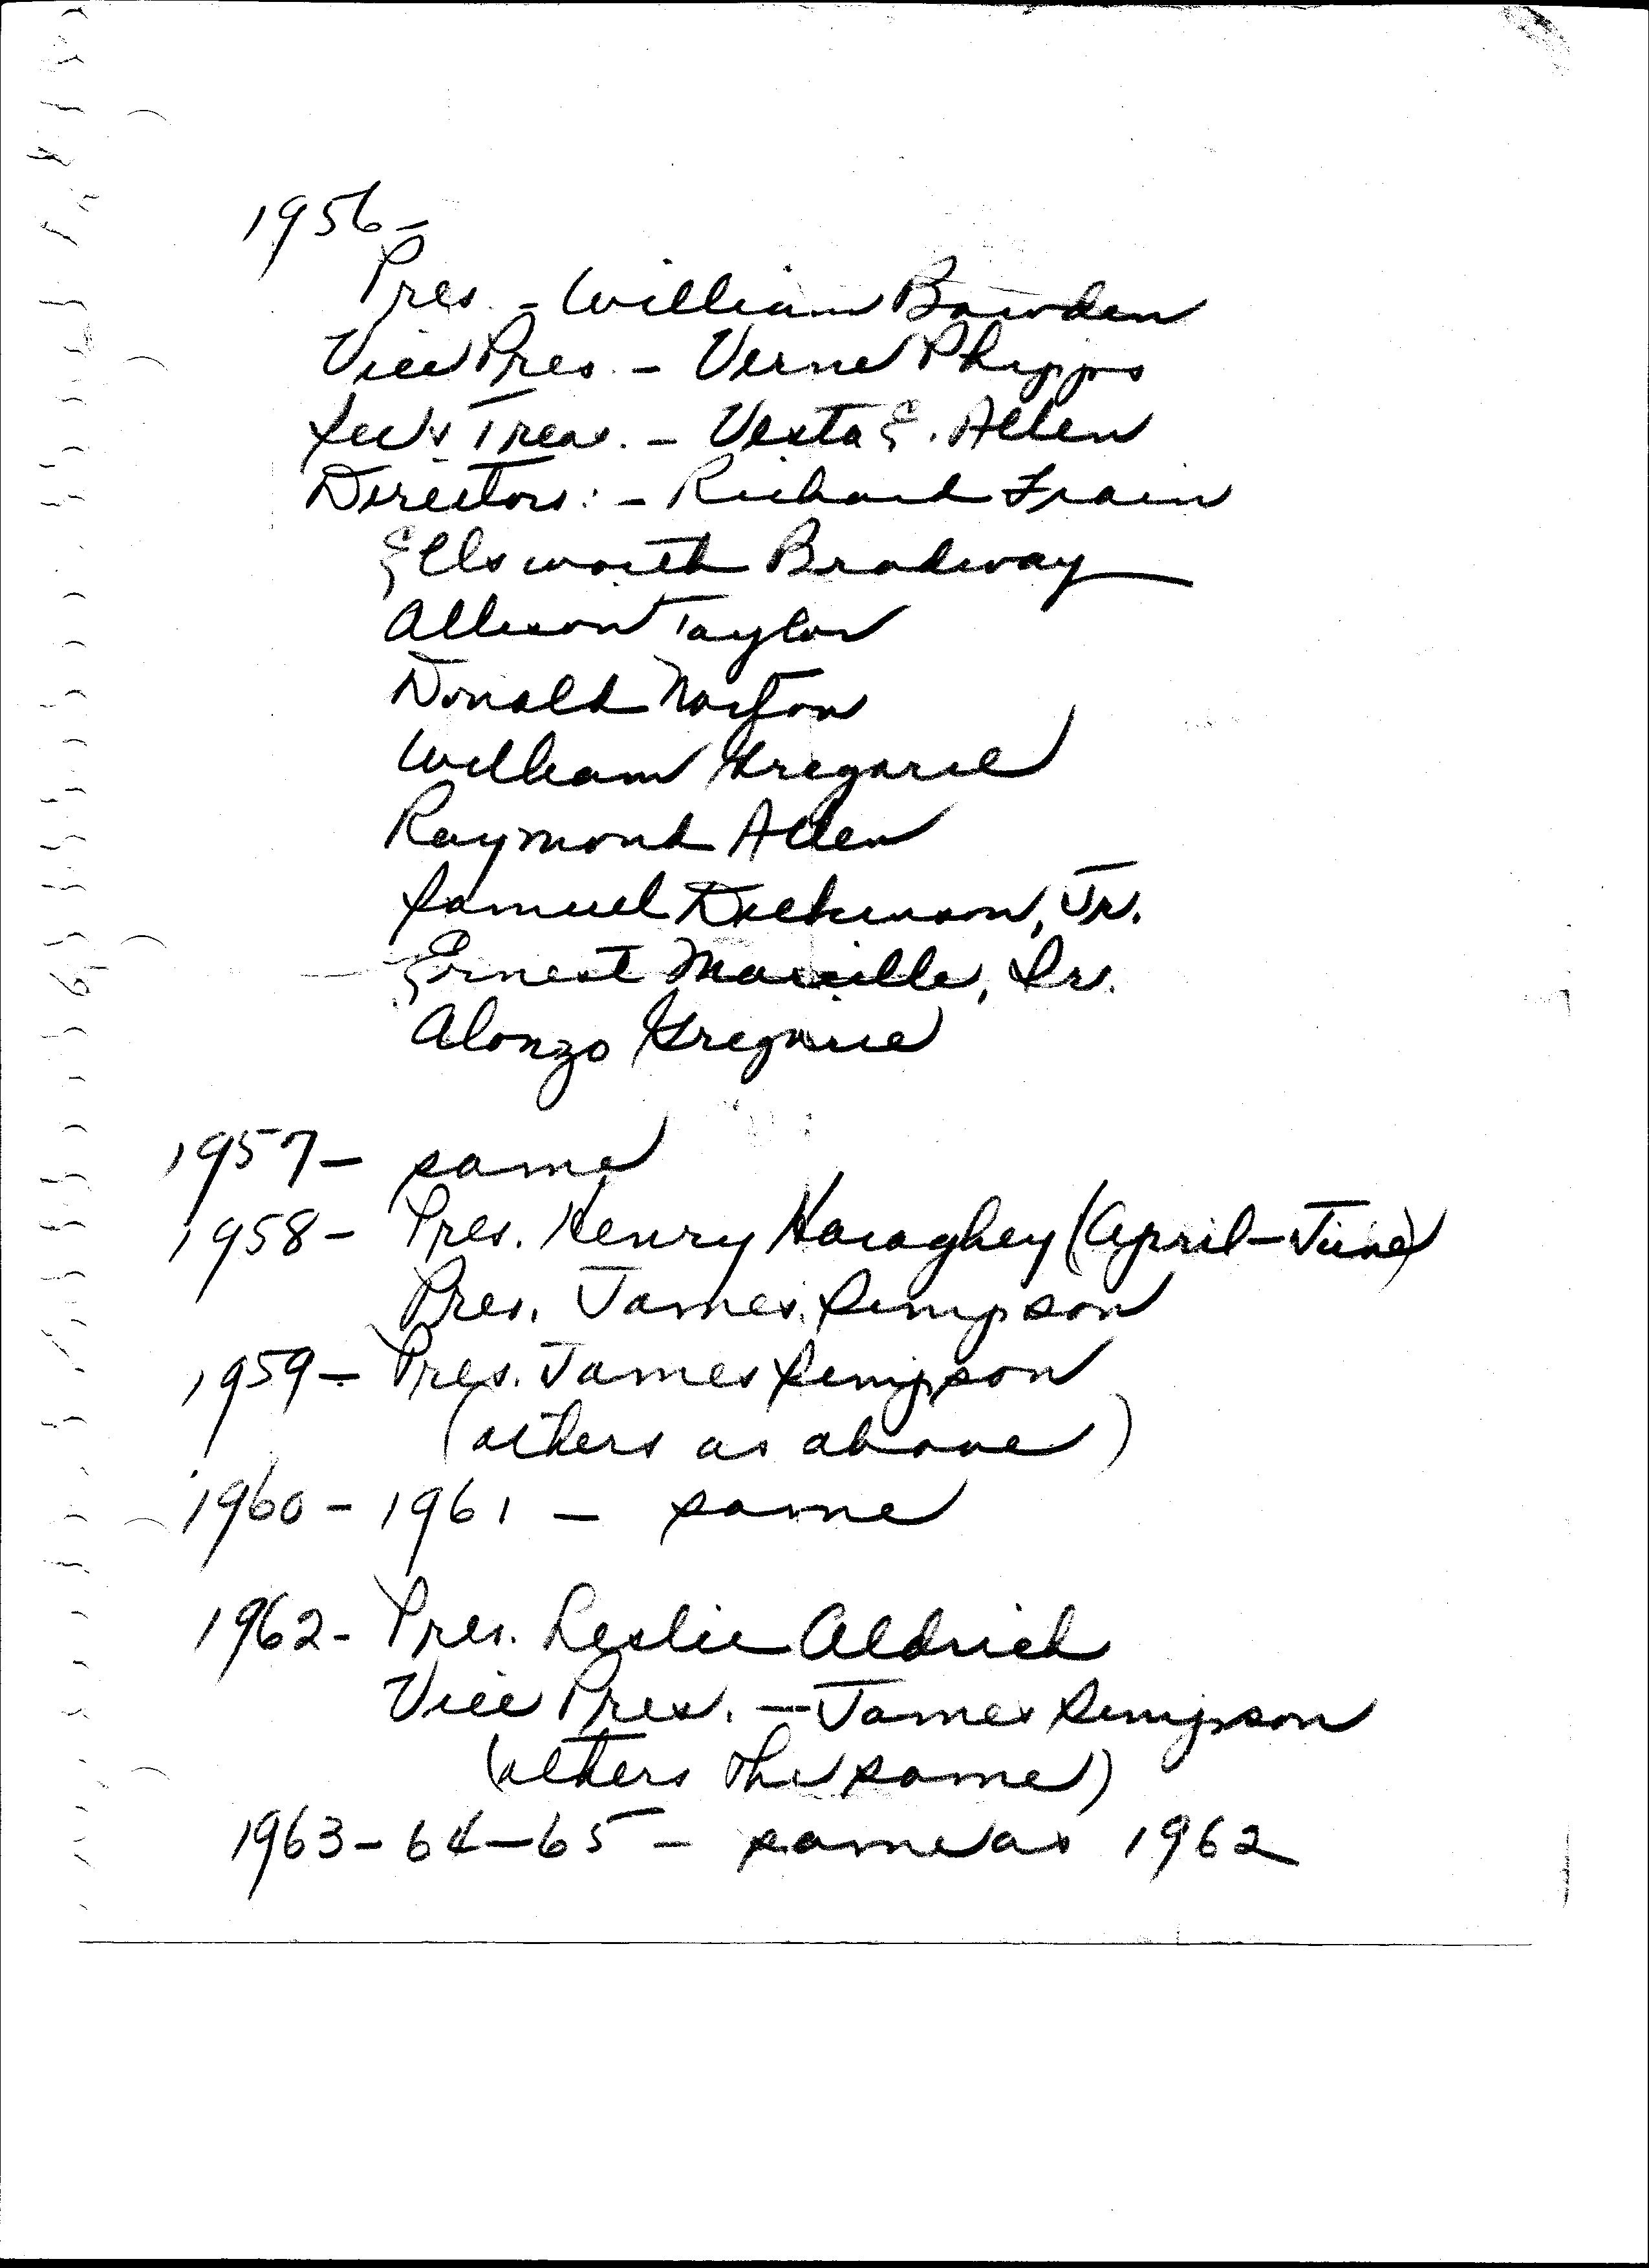 1956 -
Pres. - William Bowden
Vice Pres. - Verne Phipps
Sec'y Treas. - Vesta E. Allen
Directors: - Richard Frain
Ellsworth Bradway
Allison Taylor
Donald Norton
William Gregorie
Raymond Allen
Samuel Dickinson, Jr.
Ernest Sr.
Alonzo
1957 - same
1958 - Pres. Henry Haraghey (April - June)
Pres. James Simpson
1959 - Pres. James Simpson
(others as above)
1960 - 1961 - same
1962 - Pres. Leslie Aldrich
Vice Pres. - James Simpson
(others the same)
1963 - 64 - 65 - same as 1962